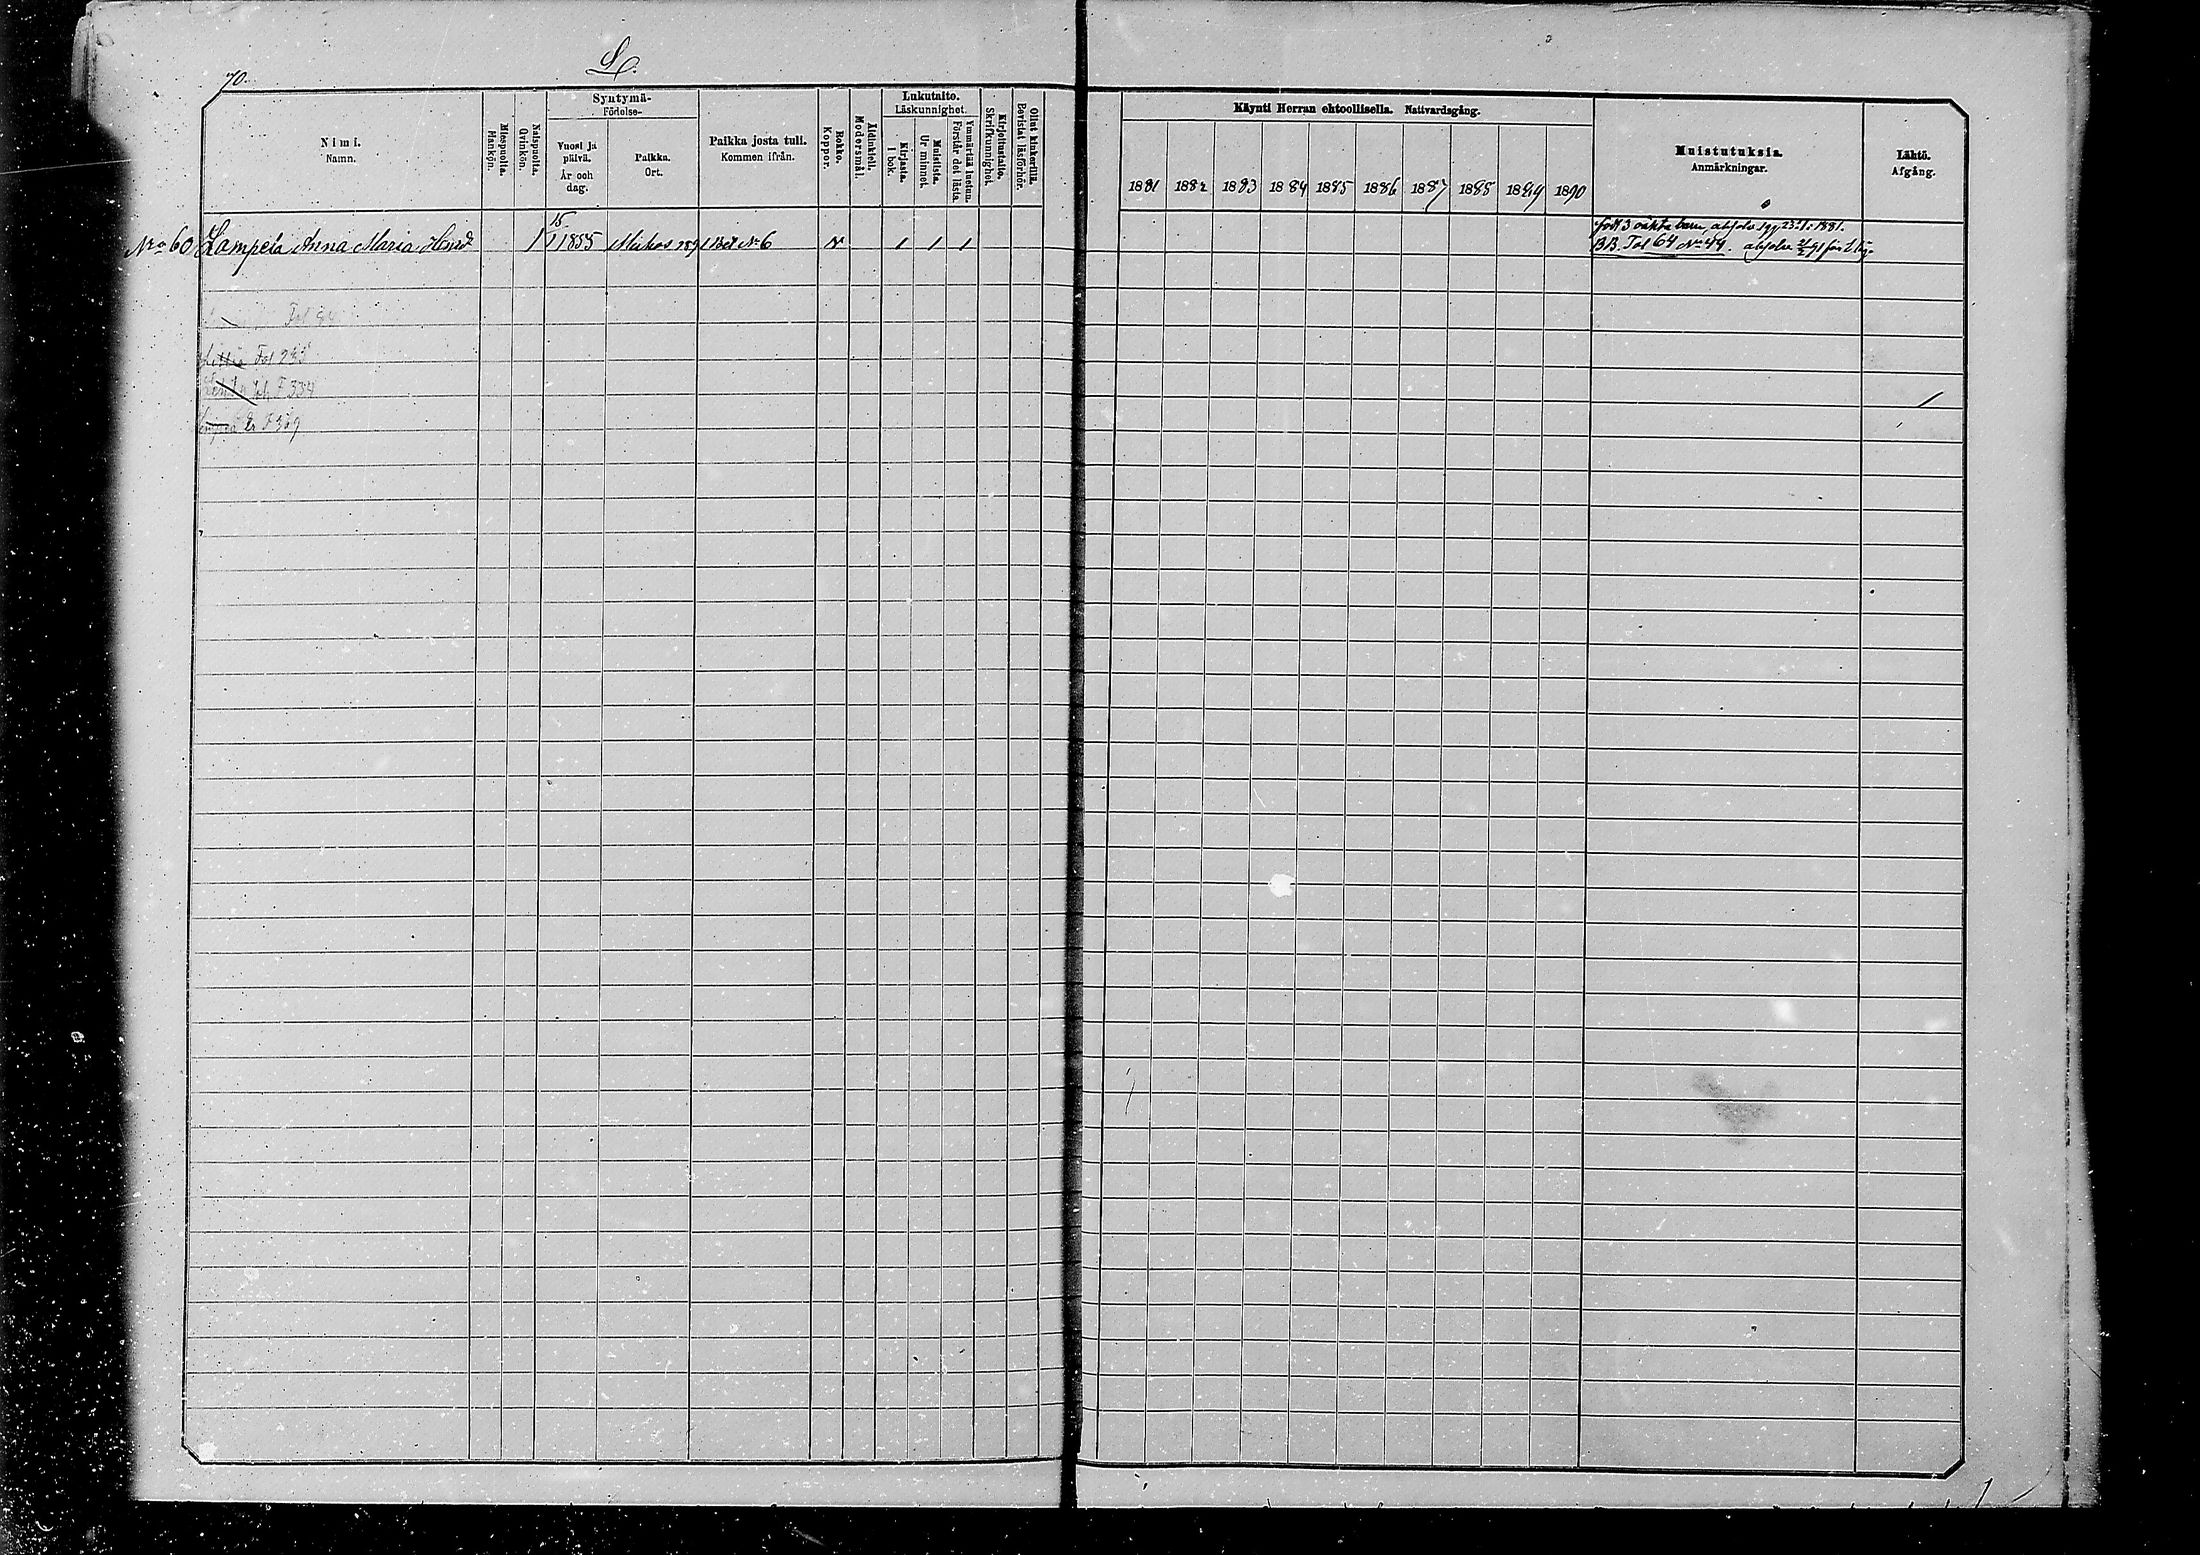 70.
L.
Nimi.
Namn.
Miespuolta.
Mankön.
Naispuolta.
Qvinkön.
Syntymä-
Födelse-
Vuosi ja
päivä.
År och
dag.
Paikka.
Ort.
Paikka josta tuli.
Kommen ifrån.
Rokko.
Koppor.
Äidinkieli.
Modersmål.
Lukutaito.
Läskunnighet.
Kirjasta.
I bok.
Muistista.
Ur minnet.
Ymmärtää luetun.
Förstår det lästa.
Kirjoitustaito.
Skrifkunnighet.
Ollut kinkerillä.
Bevistat läsförhör.
Käynti Herran ehtoollisella. Nattvardsgång.
1881 1882 1883 1884 1885 1886 1887 1888 1889 1890
Muistutuksia.
Anmärkningar.
Lähtö.
Afgång.
födt 3 oäkta barn, absolv. 23 1881.
No 60 Lampela Anna Maria 1 15/1 1855 Muhos No 6 v 1 1 1 BB. Fol 64 No 44. absolv.
Fol
Fol 235
F 334
F 369